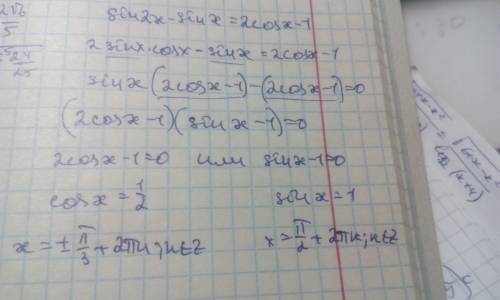 2√6
5
sin2x-sinx=2cosx-1
2sinx·cosx-sinx=2cosx-1
24
25
sinx(2cosx-1)-(2cosx-1)=0
(2cosx-1)(sinx-1)=0
2cosx-1=0 или sinx-1=0
cosx=1/2 sinx=1
x=±π/3+2πn;n∈Z x=π/2+2πn;n∈Z